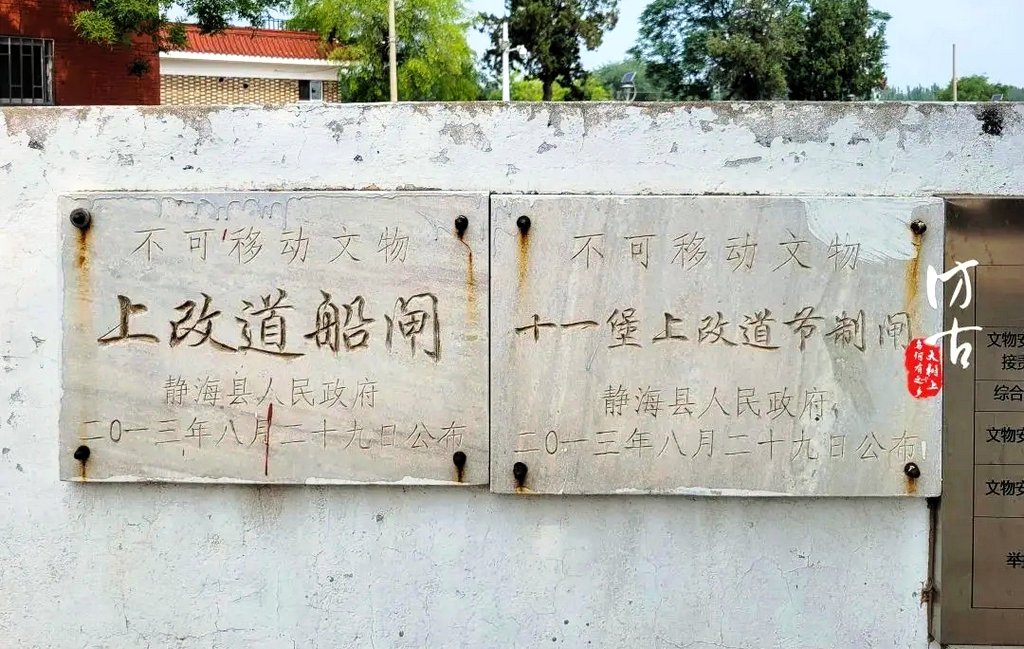 不可移动文物
上改道船闸
静海县人民政府
二0一三年八月二十九日公布
不可移动文物
十一堡上改道节制闸
静海县人民政府
二0一三年八月二十九日公布
访古
大树上
文物安
接责
综合
文物安
文物安
举